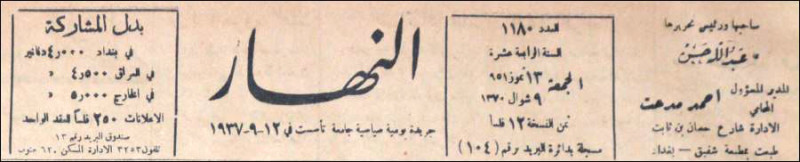 صاحبها ورئيس تحريرها
عبدالله حسن
المدير المسؤول
المحامي
احمد مدحت
الادارة شارع حسان بن ثابت
طبعت بمطبعة شفيق - بغداد
العدد ١١٨٠
السنة الرابعة عشرة
الجمعة ١٣ تموز ٩٥١
٩ شوال ١٣٧٠
ثمن النسخة ١٢ فلسا
مسجلة بدائرة البريد برقم (١٠٤)
النهار
جريدة يومية سياسية جامعة تأسست في ١٢-٩-١٩٣٧
بدل المشاركة
في بغداد ٤٫٠٠٠ دنانير
في العراق ٤٫٥٠٠ »
في الخارج ٥٫٠٠٠ »
الاعلانات ٢٥٠ فلساً للعقد الواحد
صندوق البريد رقم ١٣
تلفون ٣٢٥٣ الادارة المسكن ٦٢٠ جنوب